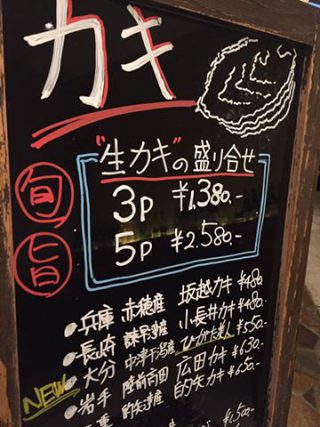 カキ
旬
旨
"生カキ"の盛り合せ
3P ¥1.380.-
5P ¥2.580.-
●兵庫 赤穂産 坂越カキ ¥480
●長崎 諫早湾産 小長井カキ ¥480.-
●大分 中津干潟産 ひがた美人 ¥550.-
NEW
●岩手 陸前高田 広田カキ ¥630.-
的矢湾産 的矢カキ ¥650.-
¥1,500.-